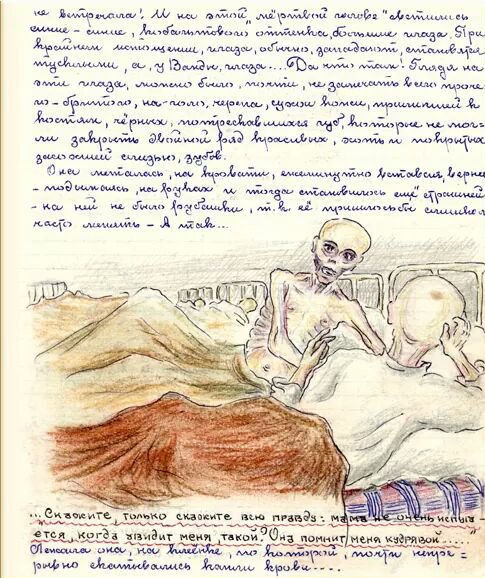 не встречала! И на этой "мёртвой голове" светились
синие-синие, кобальтового оттенка, большие глаза. При
крайнем истощении, глаза, обычно, западают, становятся
тусклыми, а, у Ванды, глаза... Да что там! Глядя на
эти глаза, можно было, почти, не замечать всего проче
го - бритого, на-голо, черепа, сухой кожи, прилипшей к
костям, чёрных, потрескавшихся губ, которые не мог-
ли закрыть двойной ряд красивых, хоть и покрытых
засохшей слизью, зубов.
Она металась, на кровати, ежеминутно вставая, вернее
- поднимаясь, на руках и тогда становилось ещё страшней
- на ней не было рубашки, т.к. её пришлось бы слишком
часто менять - А так...
... Скажите, только скажите всю правду: мама не очень испуга-
ется, когда увидит меня, такой? Она помнит меня кудрявой.....
Лежала она, на клеёнке, по которой, почти непре=
рывно скатывались капли крови....